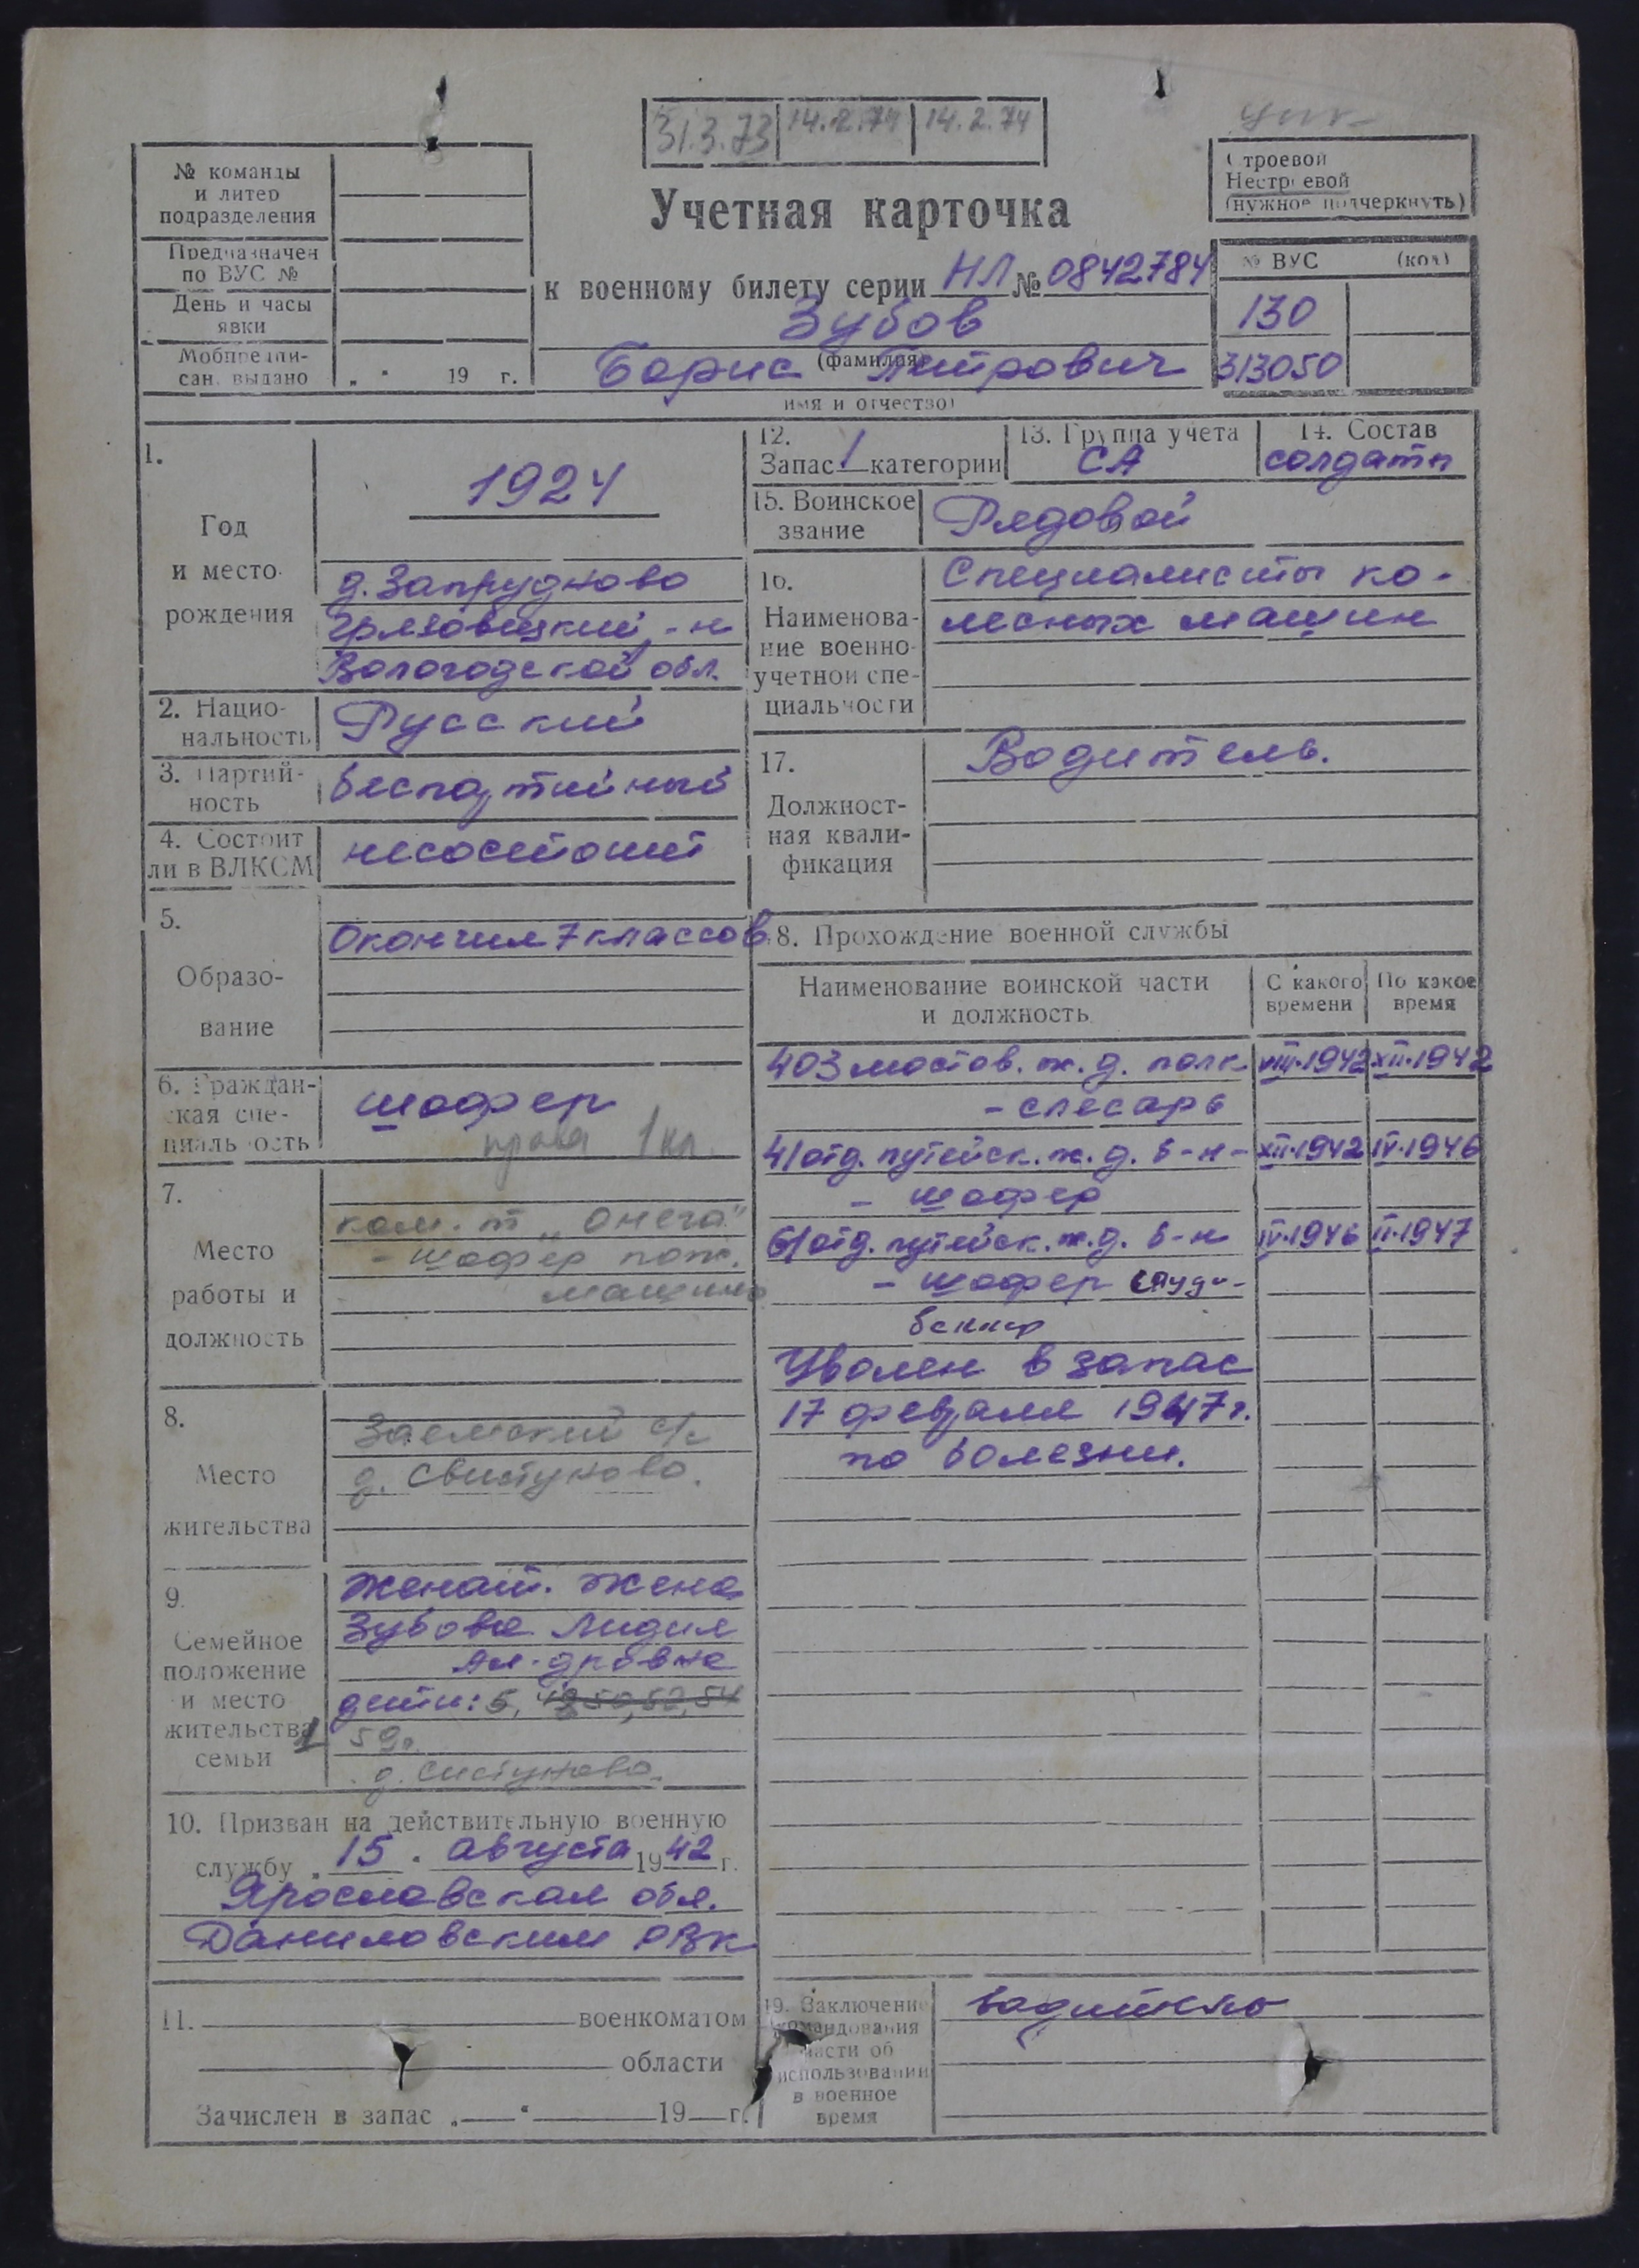 31.3.73 14.2.74 14.2.74
№ команды
и литер
подразделения
Предназначен
по ВУС №
День и часы
явки
Мобпредпи-
сан. выдано „ “ 19 г.
Учетная карточка
к военному билету серии НЛ № 0842784
Зубов
(фамилия)
Борис Петрович
имя и отчество)
Строевой
Нестроевой
(нужное подчеркнуть)
№ ВУС (код)
130
313050
1.
Год
и место
рождения
1924
д. Запрудново
Грязовецкий р-н
Вологодской обл.
2. Нацио-
нальность
Русский
3. Партий-
ность
беспартийный
4. Состоит
ли в ВЛКСМ
несостоит
5.
Образо-
вание
Окончил 7 классов
6. Граждан-
ская спе-
циальность
шофер
права 1 кл.
7.
Место
работы и
должность
ком. т „Онега"
- шофер пож.
машины
8.
Место
жительства
Заемский с/с
д. Свистуново.
9.
Семейное
положение
и место
жительства
семьи
Женат. Жена
Зубова Лидия
Ал-дровна
дети: 5, 48, 50, 52, 54
1 59г.
д. Систуново.
10. Призван на действительную военную
службу „15“ августа 1942 г.
Ярославская обл.
Даниловским РВК
11. военкоматом
области
Зачислен в запас „ “ 19 г.
12.
Запас 1 категории
13. Группа учета
СА
14. Состав
солдаты
15. Воинское
звание
Рядовой
16.
Наименова-
ние военно-
учетной спе-
циальности
Специалисты ко-
лесных машин
17.
Должност-
ная квали-
фикация
Водитель.
18. Прохождение военной службы
Наименование воинской части
и должность
С какого
времени
По какое
время
403 мостов. ж. д. полк VIII.1942 XII.1942
- слесарь
41 отд. путейск. ж. д. б-н - XII.1942 IV.1946
- шофер
61 отд. путейск. ж. д. б-н IV.1946 II.1947
- шофер студе-
беккер
Уволен в запас
17 февраля 1947 г.
по болезни.
19. Заключение
командования
части об
использовании
в военное
время
водитель